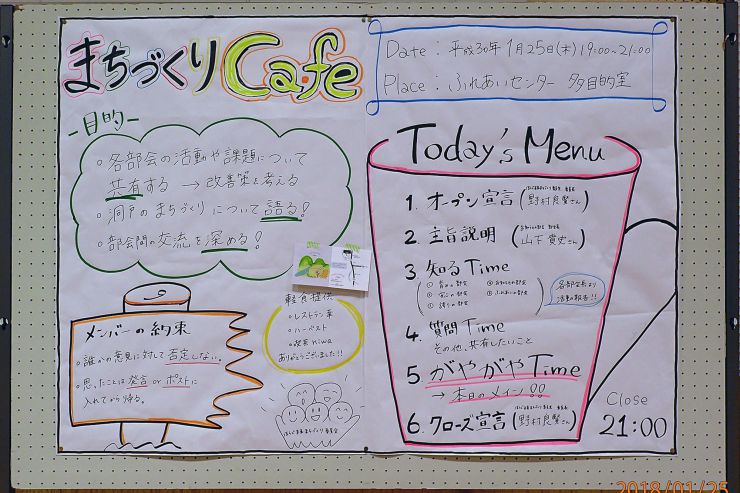 まちづくりCafe
Date : 平成30年 1月25日(木) 19:00~21:00
Place : ふれあいセンター 多目的室
-目的-
・各部会の活動や課題について
共有する → 改善策を考える
・洞戸のまちづくりについて語る!
・部会間の交流を深める!
メンバーの約束
・誰かの意見に対して否定しない。
・思ったことは発言 or ポストに
入れてから帰る。
軽食提供
・レストラン
・ハーベスト
ありがとうございました!!
Today's Menu
1. オープン宣言 (野村良賢さん)
2. 主旨説明 (山下貴史さん)
3 知るTime
各部会長より
活動の報告!!
4. 質問Time
その他、共有したいこと
5. がやがやTime
→ 本日のメイン!!
6. クローズ宣言 (野村良賢さん)
Close
21:00
2018/01/25